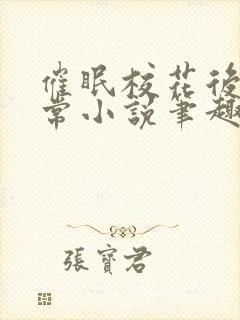 催眠校花後
常小說筆趣
張寶君